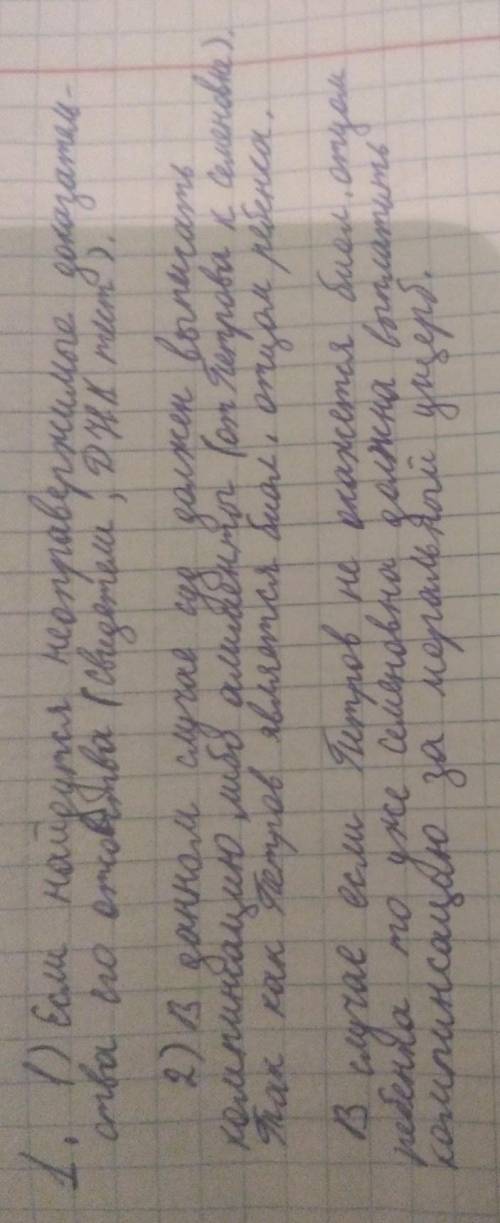 1. 1) Если найдутся неоправержимые доказатель-
ства его отновства (свидетели, ДНК тест).
2) В данном случае суд должен выписать
компинсацию либо алименты (от Петрова к Семеновне).
Так как Петров является биол. отцом ребенка.
В случае если Петров не окажется биол. отцом
ребенка то уже Семеновна должна выплатить
компинсацию за моральный ущерб.